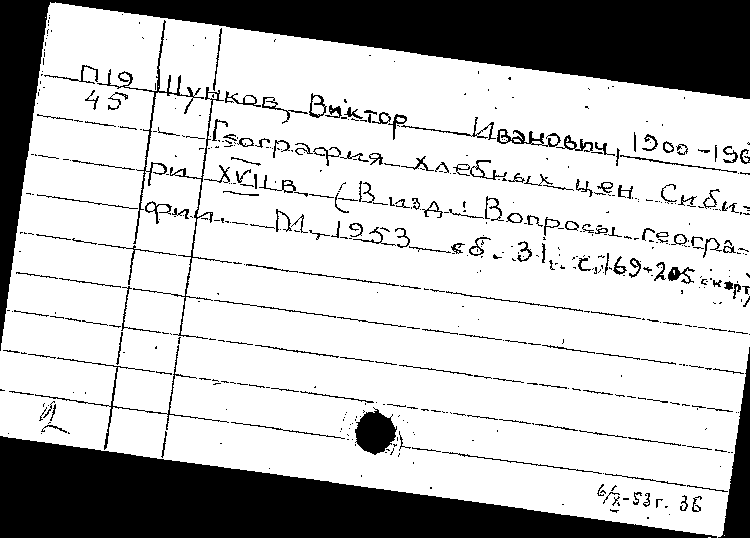 П19 Шунков, Виктор Иванович, 1900-196
45 География хлебных цен Сиби-
ри XVII в. (В изд.: Вопросы геогра-
фии. М., 1953 сб. 31. с. 169-205 с карт.)
2
6/X-53г. ЗБ